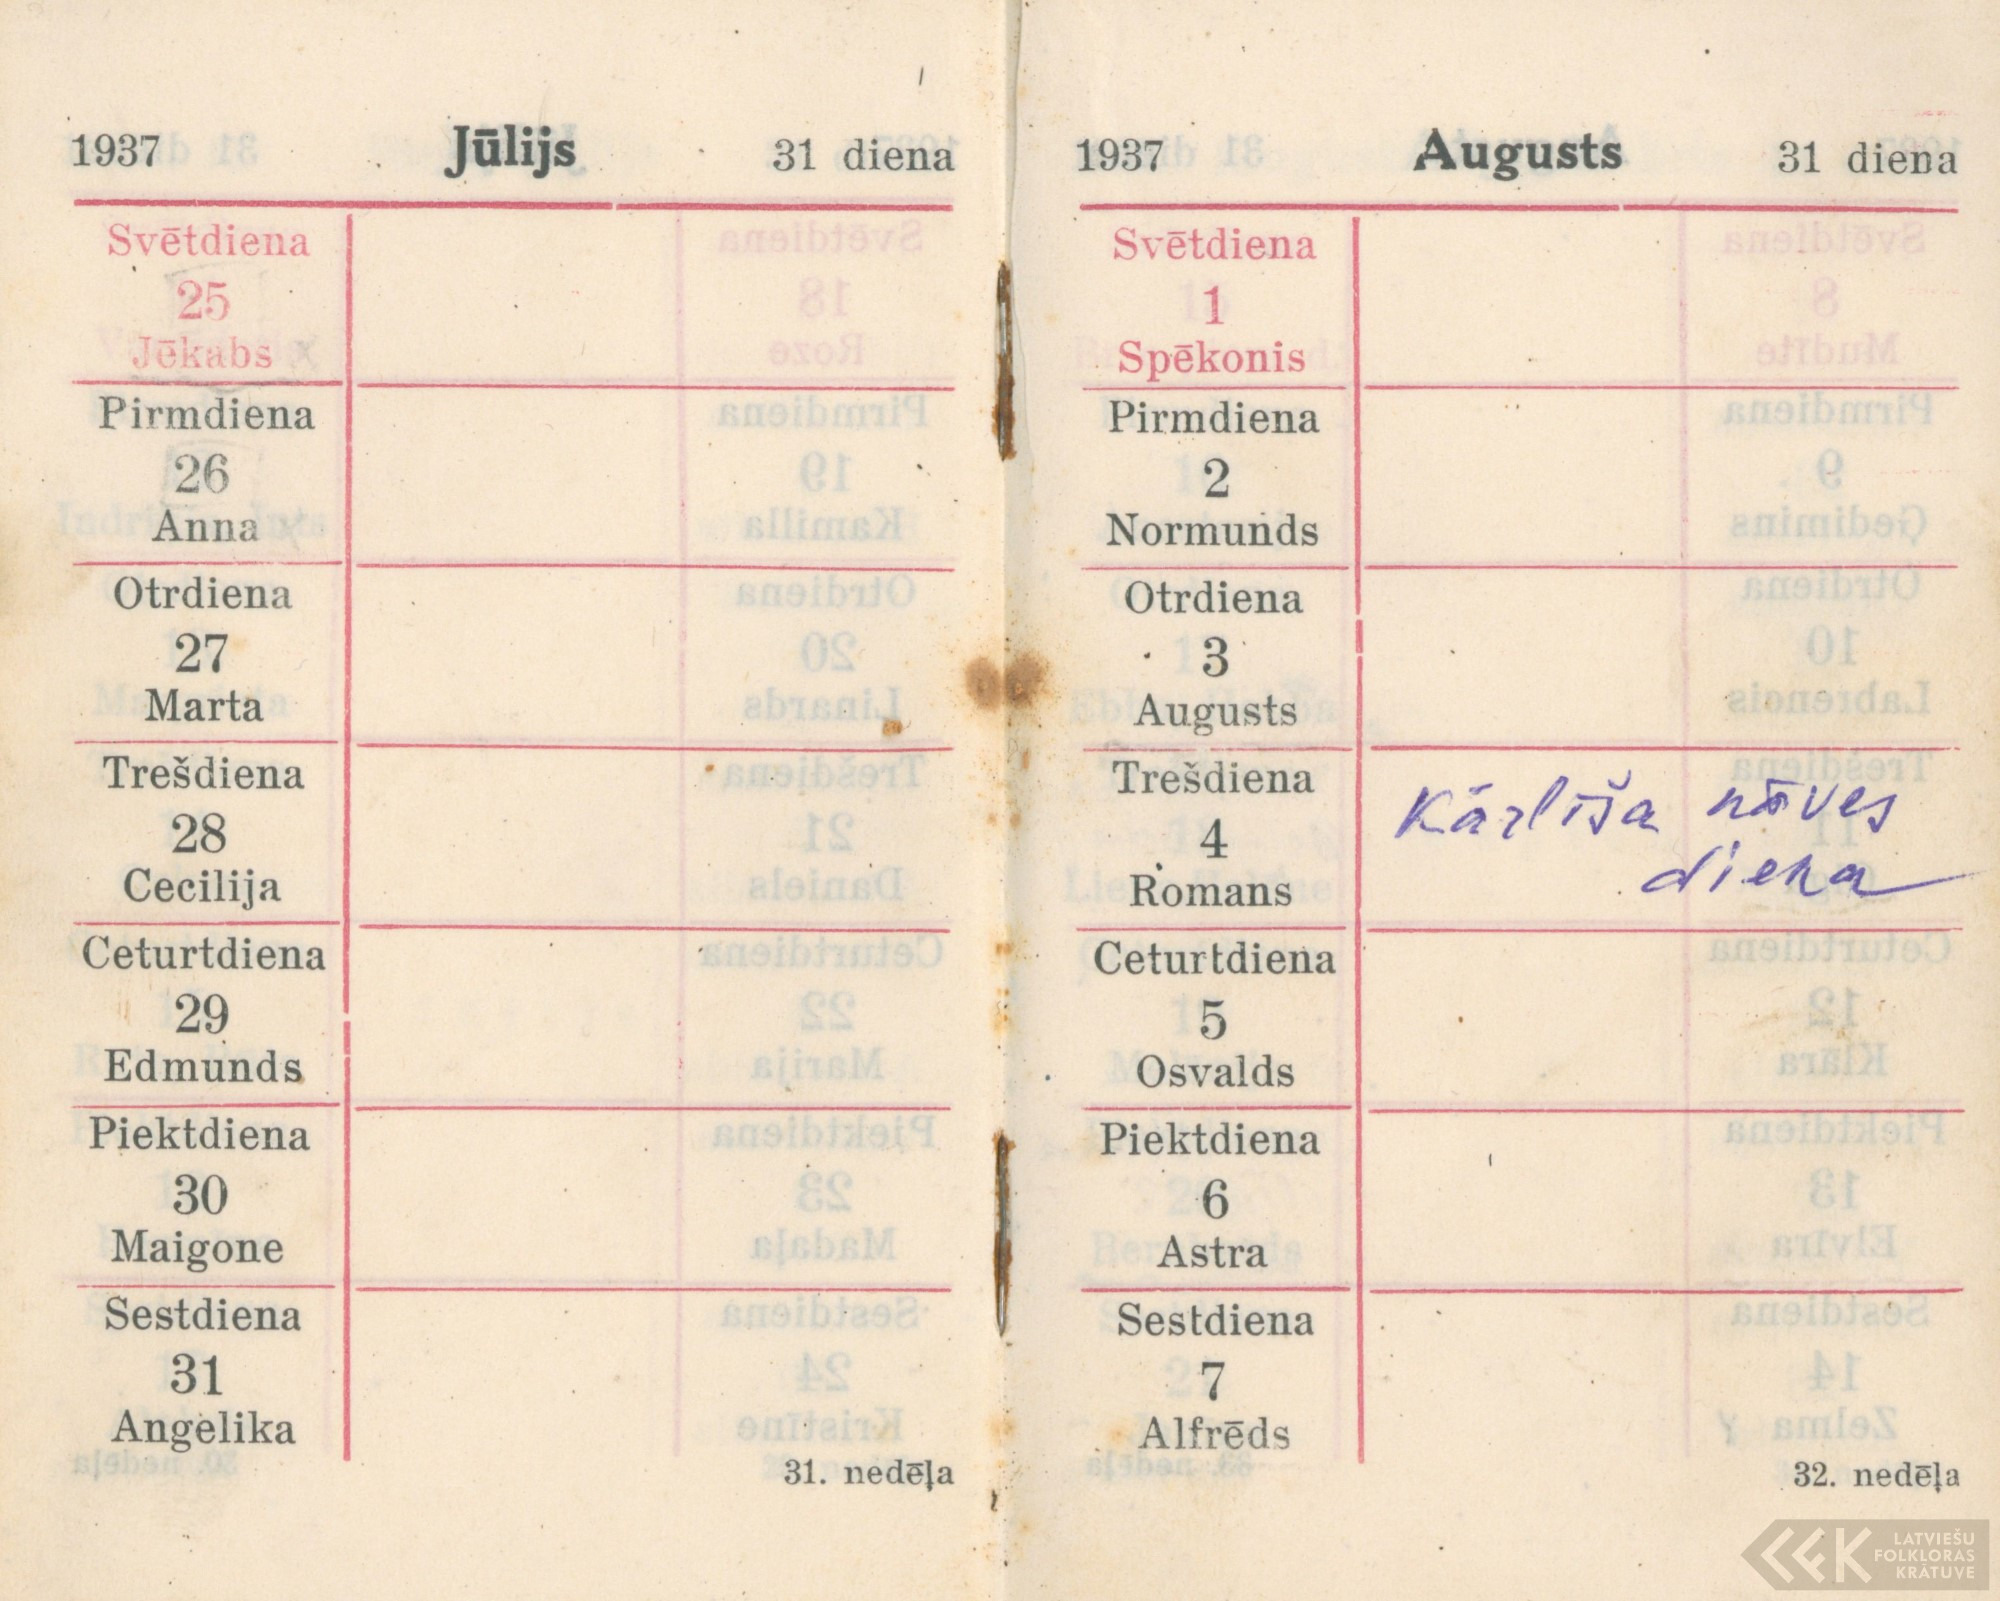 1937 Jūlijs 31 diena
Svētdiena
25
Jēkabs
Pirmdiena
26
Anna
Otrdiena
27
Marta
Trešdiena
28
Cecilija
Ceturtdiena
29
Edmunds
Piektdiena
30
Maigone
Sestdiena
31
Angelika
31. nedēļa
1937 Augusts 31 diena
Svētdiena
1
Spēkonis
Pirmdiena
2
Normunds
Otrdiena
3
Augusts
Trešdiena
4
Romans
Kārlīša nāves
diena
Ceturtdiena
5
Osvalds
Piektdiena
6
Astra
Sestdiena
7
Alfrēds
32. nedēļa
LATVIEŠU
FOLKLORAS
KRĀTUVE